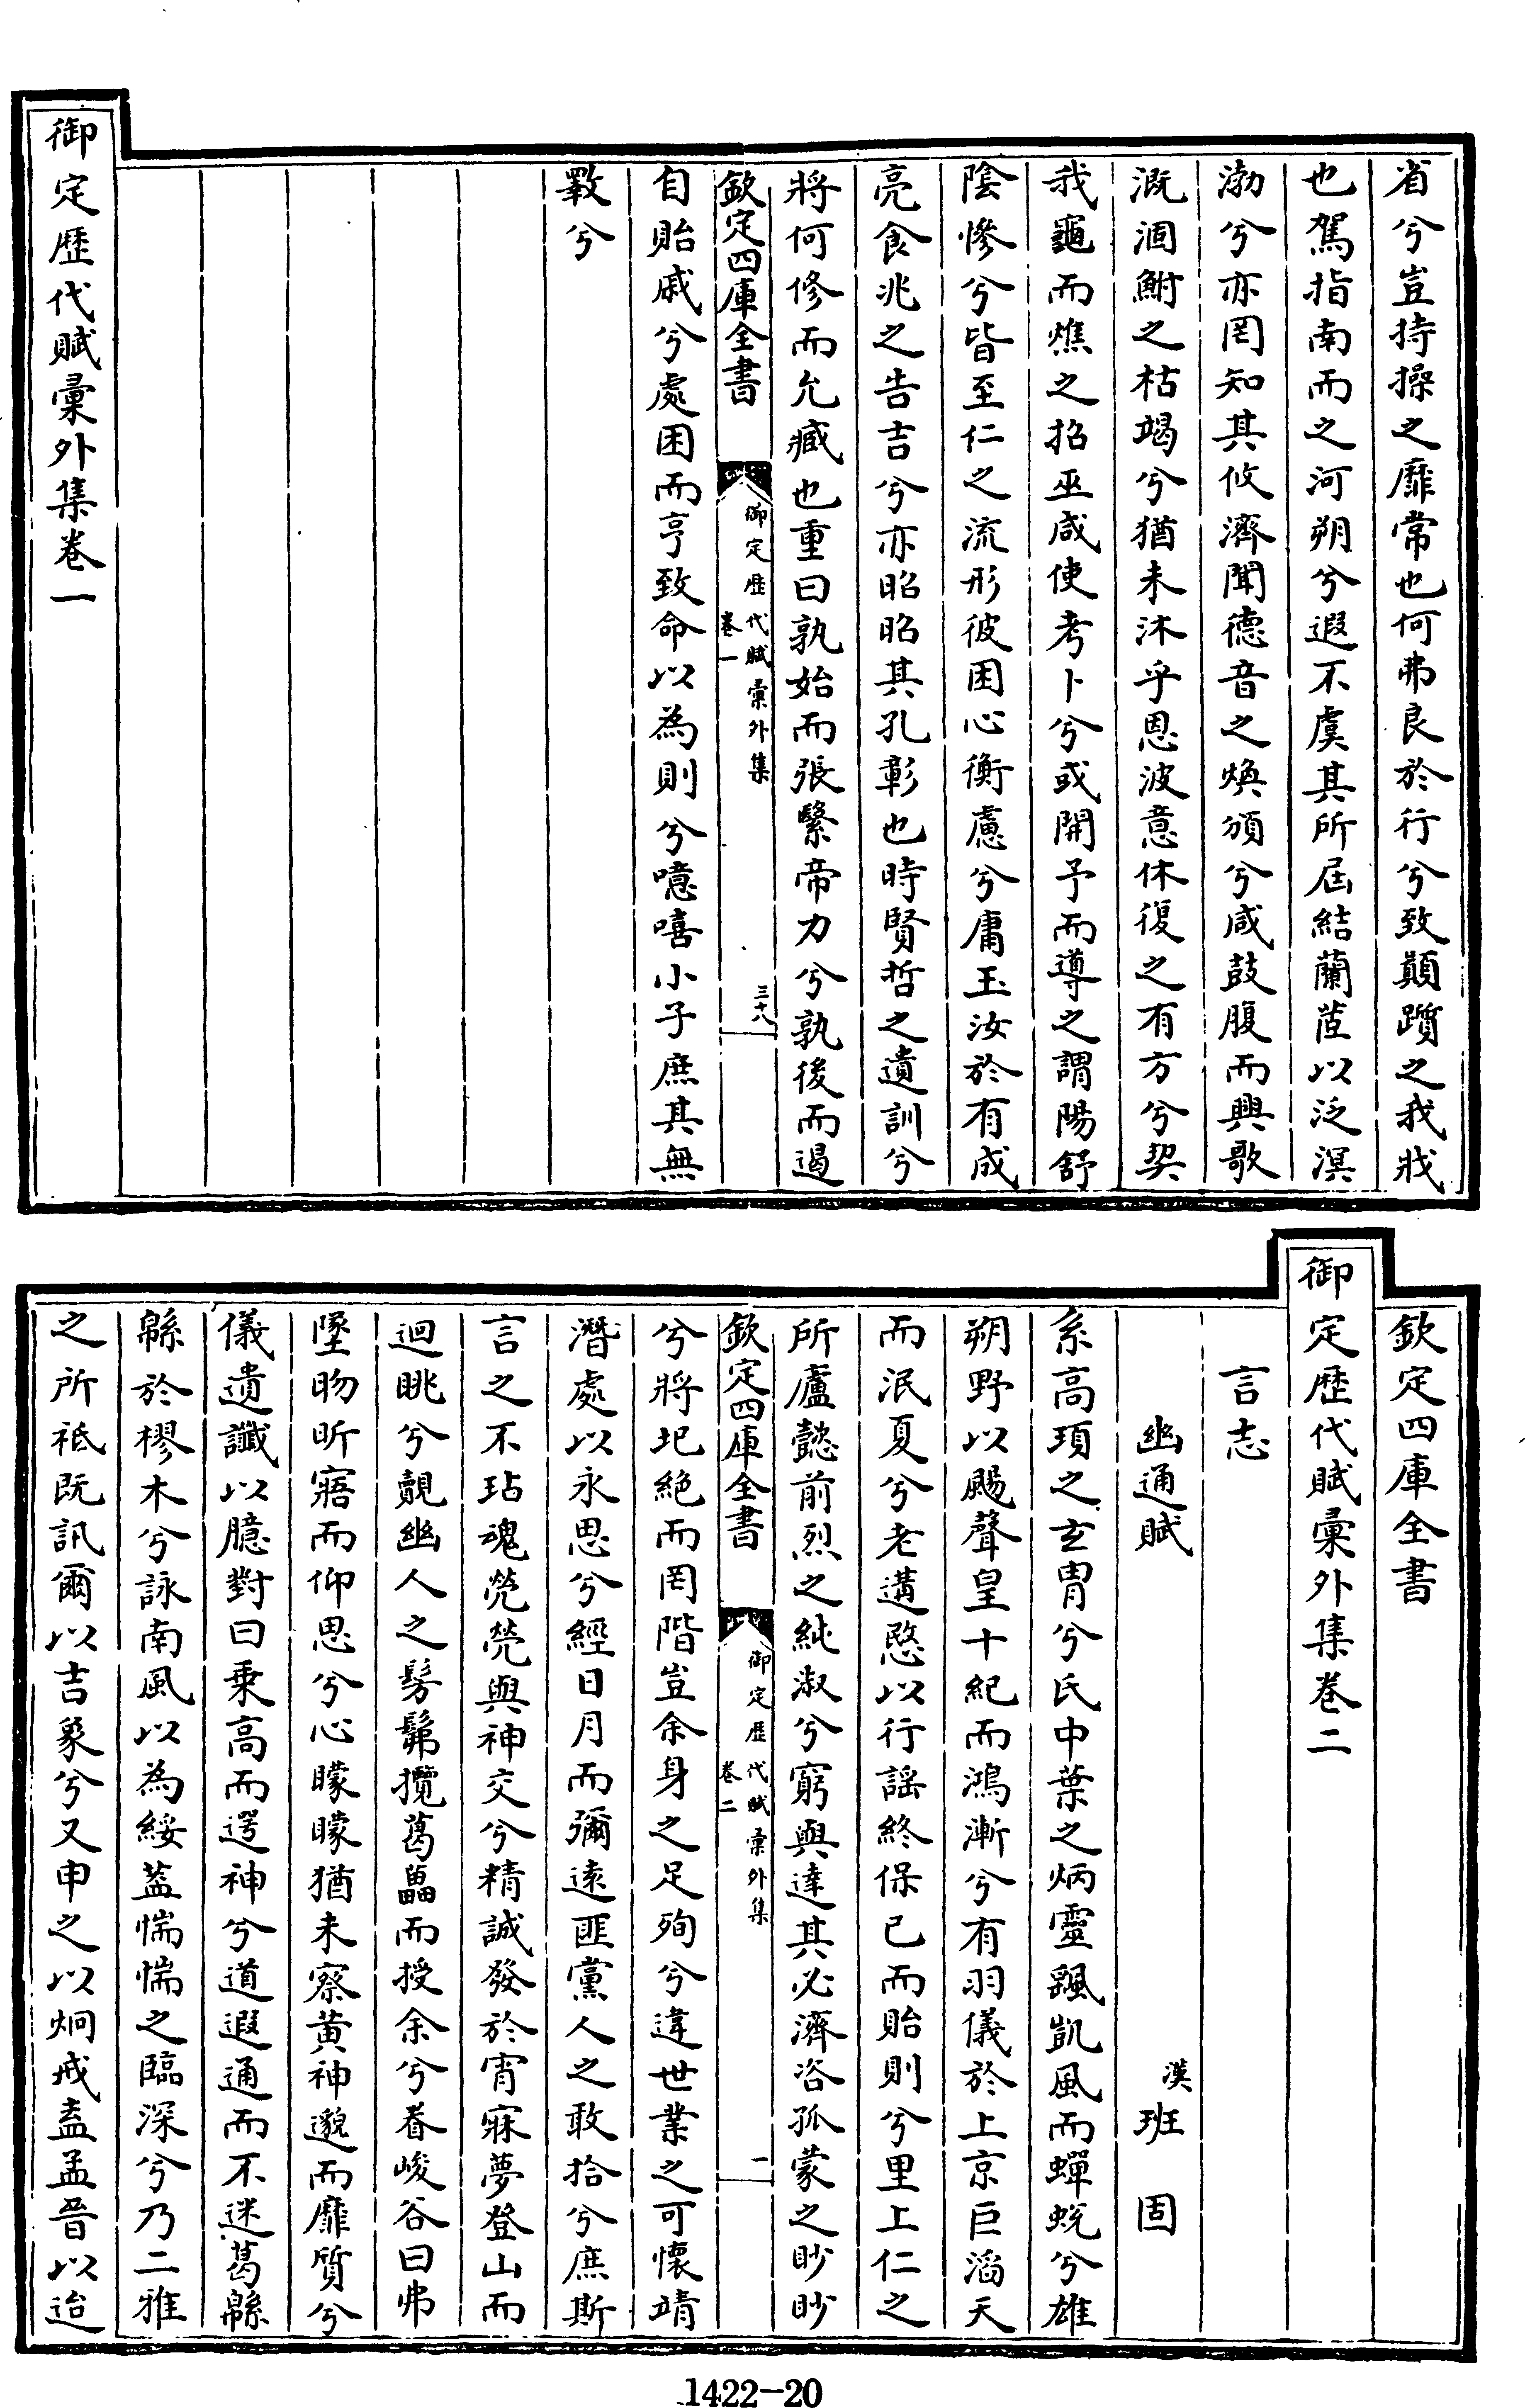 省兮豈持操之靡常也何弗良於行兮致顛躓之我戕
也駕指南而之河朔兮遐不虞其所屆結蘭茝以泛溟
渤兮亦罔知其攸濟聞德音之煥頒兮咸鼓腹而興歌
溉涸鮒之枯竭兮猶未沐乎恩波意休復之有方兮契
我龜而燋之招巫咸使考卜兮或開予而導之謂陽舒
陰慘兮皆至仁之流形彼困心衡慮兮庸玉汝於有成
亮食兆之告吉兮亦昭昭其孔彰也時賢哲之遺訓兮
將何修而允臧也重曰孰始而張繄帝力兮孰後而遏
欽定四庫全書
御定歷代賦彙外集
卷一
三十八
自貽戚兮處困而亨致命以為則兮噫嘻小子庶其無
斁兮
御定歷代賦彙外集卷一
欽定四庫全書
御定歷代賦彙外集卷二
言志
幽通賦 漢 班固
系高頊之玄胄兮氏中葉之炳靈飊凱風而蟬蛻兮雄
朔野以颺聲皇十紀而鴻漸兮有羽儀於上京巨滔天
而泯夏兮考遘愍以行謡終保已而貽則兮里上仁之
所廬懿前烈之純淑兮窮與達其必濟咨孤蒙之眇眇
欽定四庫全書
御定歷代賦彙外集
卷二
一
兮將圯絶而罔階豈余身之足殉兮違世業之可懷靖
潛處以永思兮經日月而彌遠匪黨人之敢拾兮庶斯
言之不玷魂煢煢與神交兮精誠發於宵寐夢登山而
迴眺兮覿幽人之髣髴攬葛藟而授余兮眷峻谷曰弗
墜昒昕寤而仰思兮心矇矇猶未察黄神邈而靡質兮
儀遺讖以臆對曰乗高而遻神兮道遐通而不迷葛緜
緜於樛木兮詠南風以為綏葢惴惴之臨深兮乃二雅
之所祗既訊爾以吉象兮又申之以炯戒盍孟晉以迨
1422-20